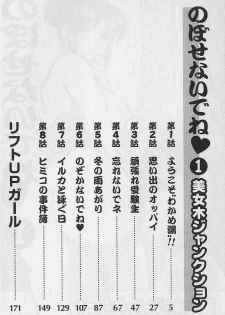 のぼせないでね♥
①美女木ジャンクション
第1話 ようこそ、“わかめ湯”!! 5
第2話 思い出のオッパイ 27
第3話 頑張れ受験生 47
第4話 忘れないでネ 67
第5話 冬の雨あがり 87
第6話 のぞかないでね♥ 107
第7話 イルカと泳ぐ日 129
第8話 ヒミコの事件簿 149
リフトUPガール 171